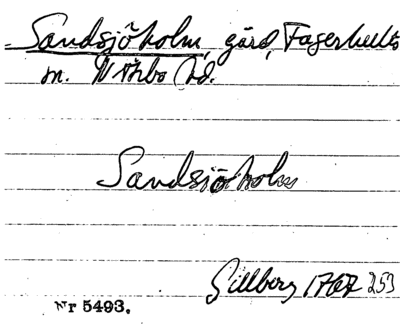 Sandsjöholm, gård, Fagerhults
m. N Åsbo hd.
Sandsjöholm
Gillberg 1767 253
Nr 5493.